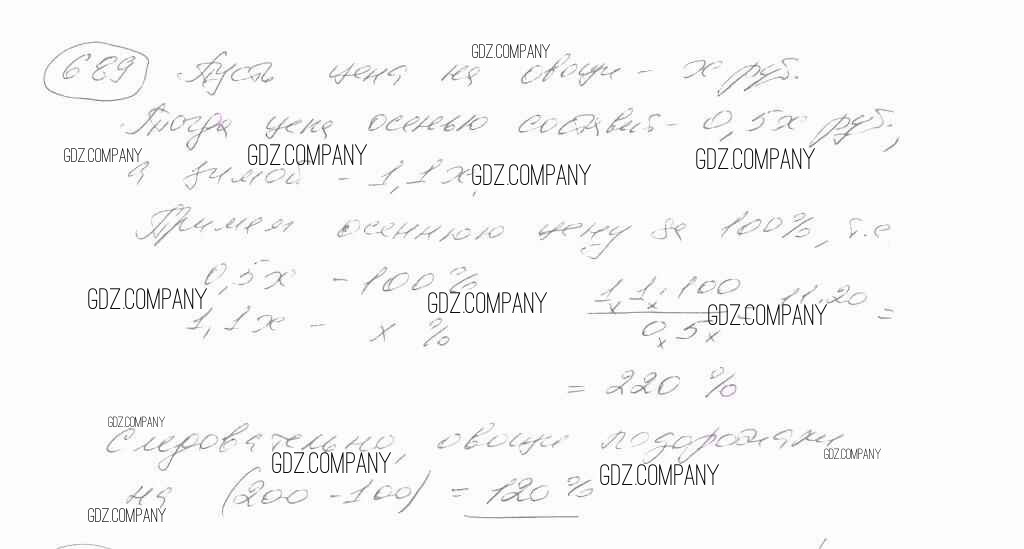 GDZ.COMPANY
689 Пусть цена на овощи - x руб.
Тогда цена осенью составит - 0,5x руб.,
GDZ.COMPANY GDZ.COMPANY GDZ.COMPANY GDZ.COMPANY
а зимой - 1,1x,
Примем осеннюю цену за 100%, т.е
0,5x - 100%
GDZ.COMPANY GDZ.COMPANY GDZ.COMPANY
1,1x - x %
1,1·100 / 0,5 = 11·20 =
= 220 %
GDZ.COMPANY
Следовательно, овощи подорожали
GDZ.COMPANY GDZ.COMPANY GDZ.COMPANY
на (200 - 100) = 120%
GDZ.COMPANY